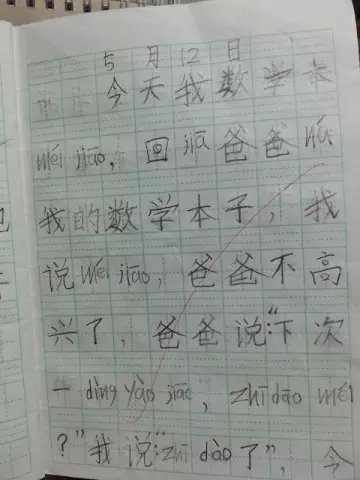 5月12日
今天我数学本
méi jiāo，回jiā爸爸ná
我的数学本子，我
说méi jiāo，爸爸不高
兴了，爸爸说:“下次
一dìng yào jiāo，zhī dào méi
？”我说“zhī dào了”，今